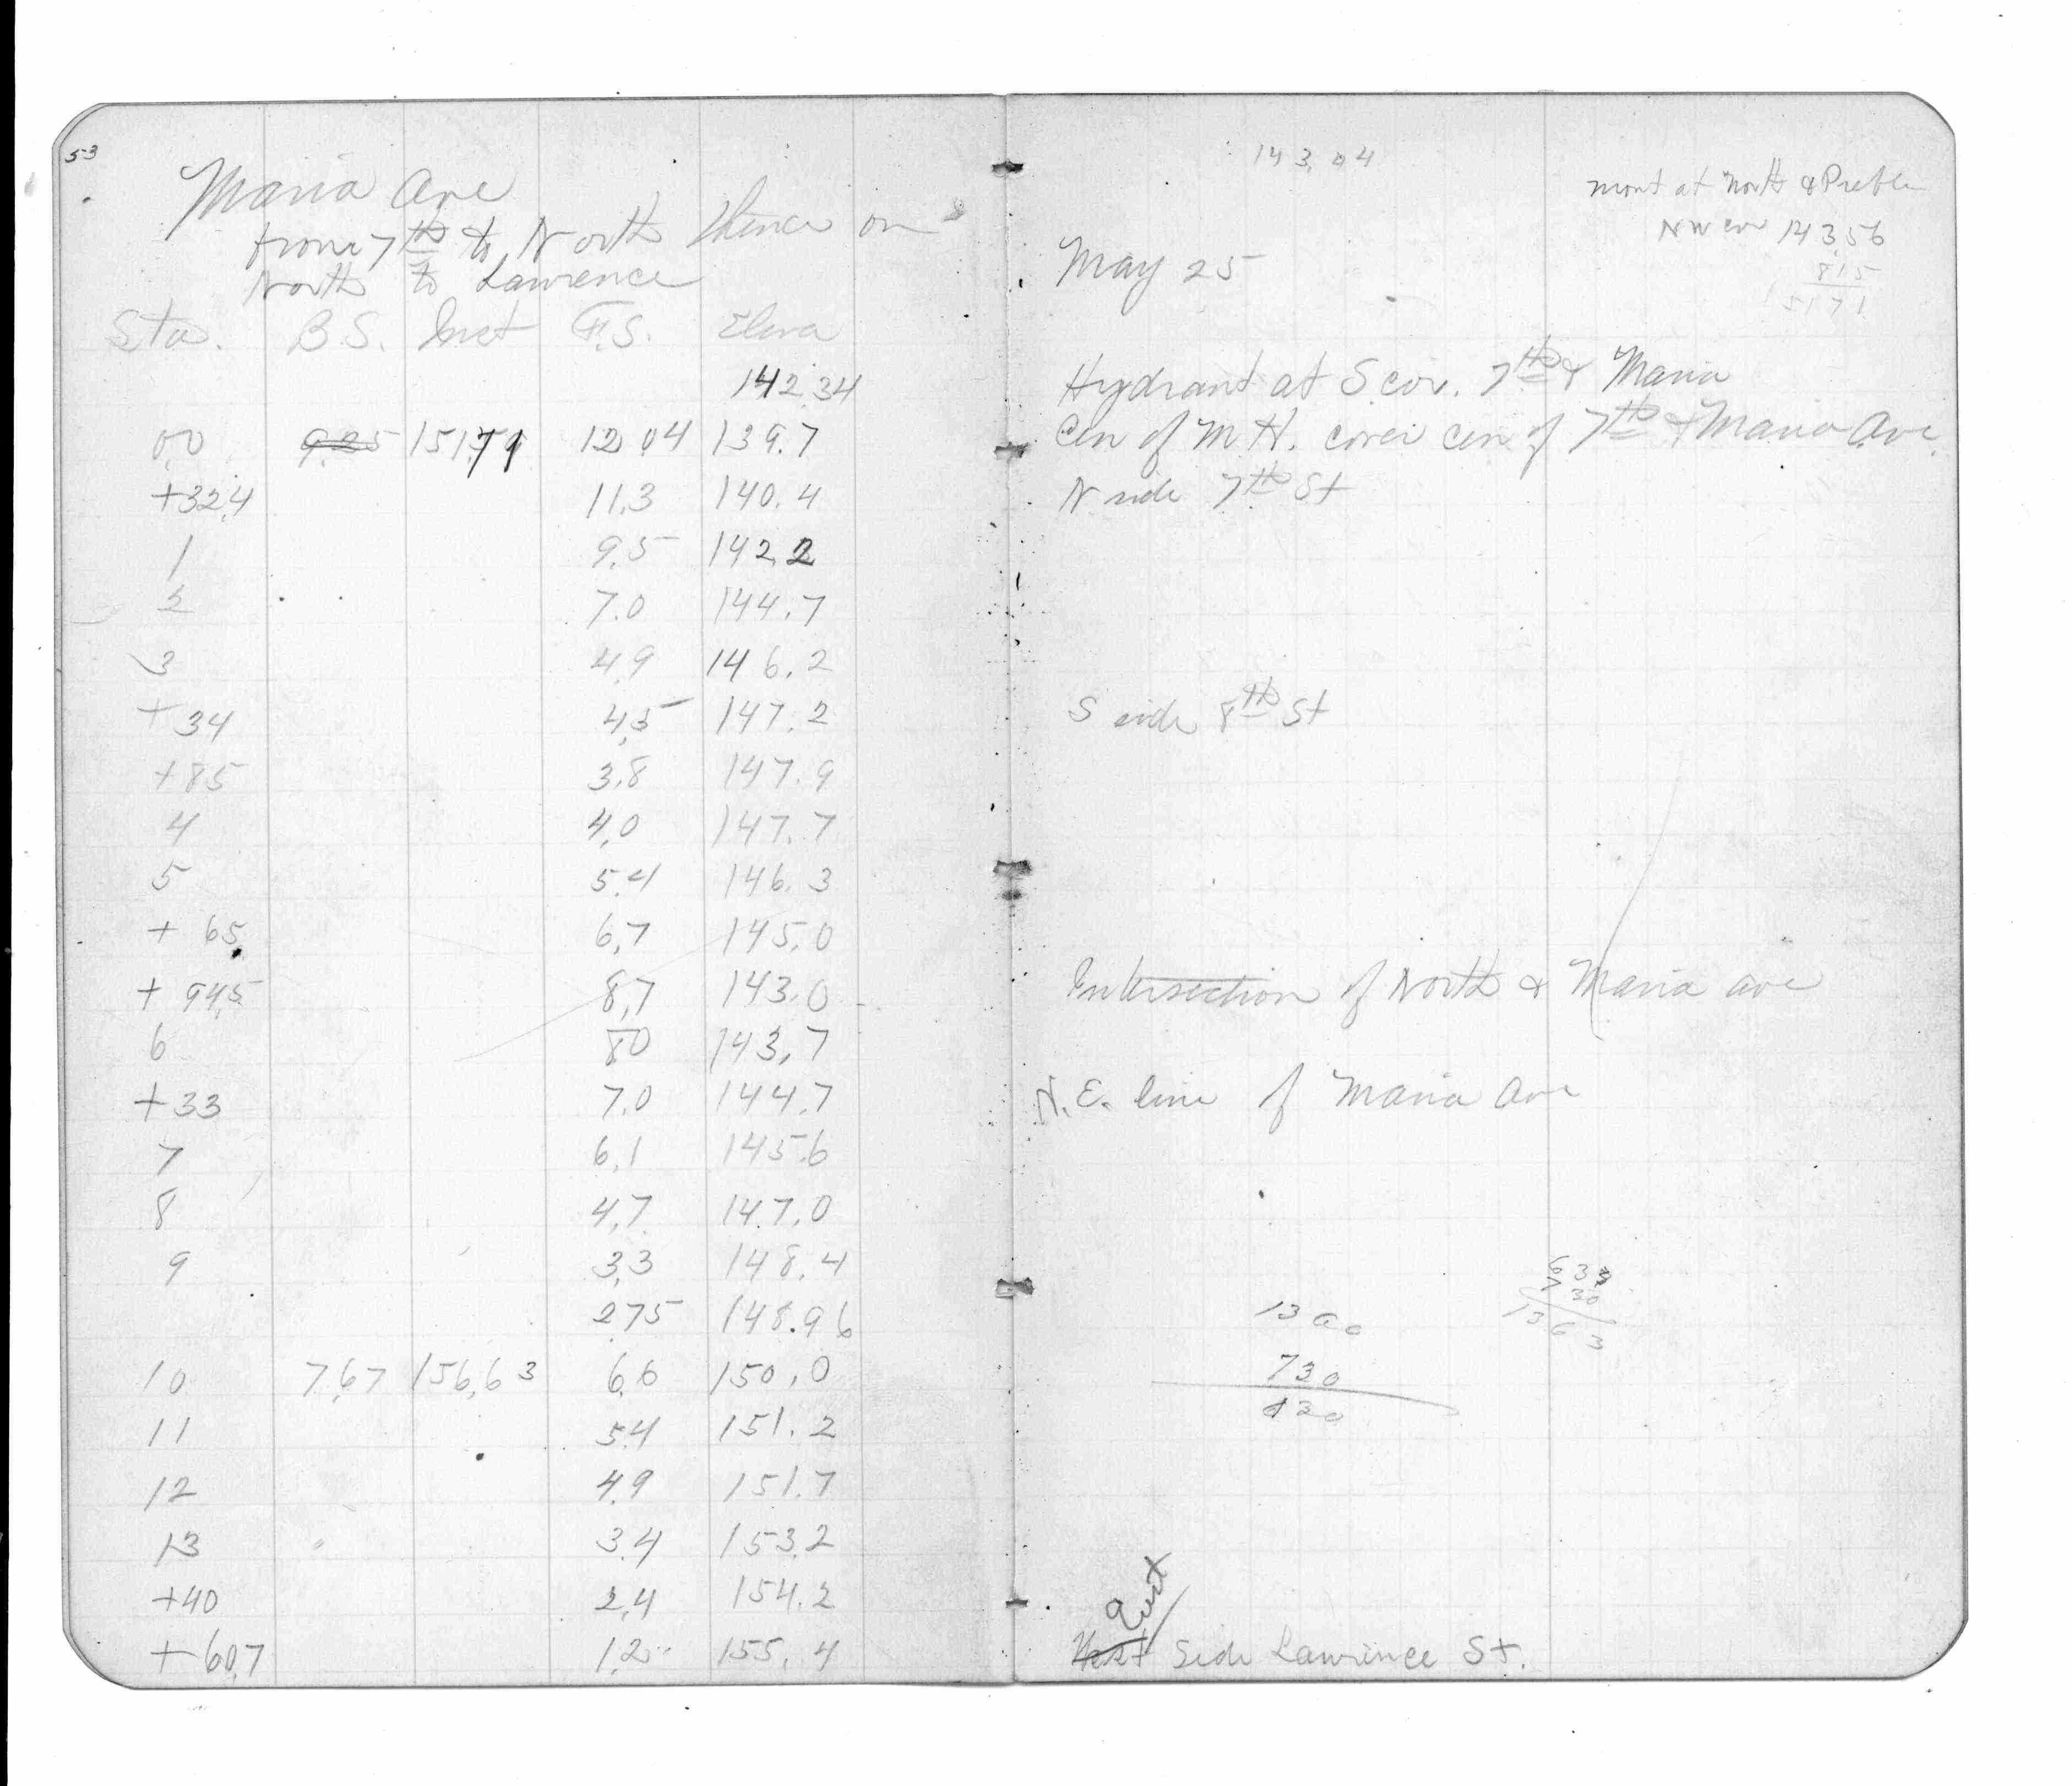 53
Maria Ave
from 7th to North thence on
North to Lawrence
Sta. B.S. Inst F.S. Eleva
142.34
0.0 9.25 151.71 12.04 139.7
+32.4 11.3 140.4
1 9.5 142.2
2 7.0 144.7
3 4.9 146.2
+34 4.5 147.2
+85 3.8 147.9
4 4.0 147.7
5 5.4 146.3
+ 65. 6.7 145.0
+ 94.5 8.7 143.0
6 80 143.7
+33 7.0 144.7
7 6.1 145.6
8 4.7 147.0
9 3.3 148.4
2.75 148.96
10 7.67 156.63 6.6 150.0
11 5.4 151.2
12 4.9 151.7
13 3.4 153.2
+40 2.4 154.2
+60.7 1.2 155.4
143.04
mont at North & Preble
NW cor 143.56
8.15
151.71
May 25
Hydrant at S. cor. 7th & Maria
Cen of M.H. cover cen of 7th & Maria Ave.
N side 7th St
S side 8th St
Intersection of North & Maria ave
N.E. line of Maria Ave
633
730
1363
1300
730
630
East
West Side Lawrence St.